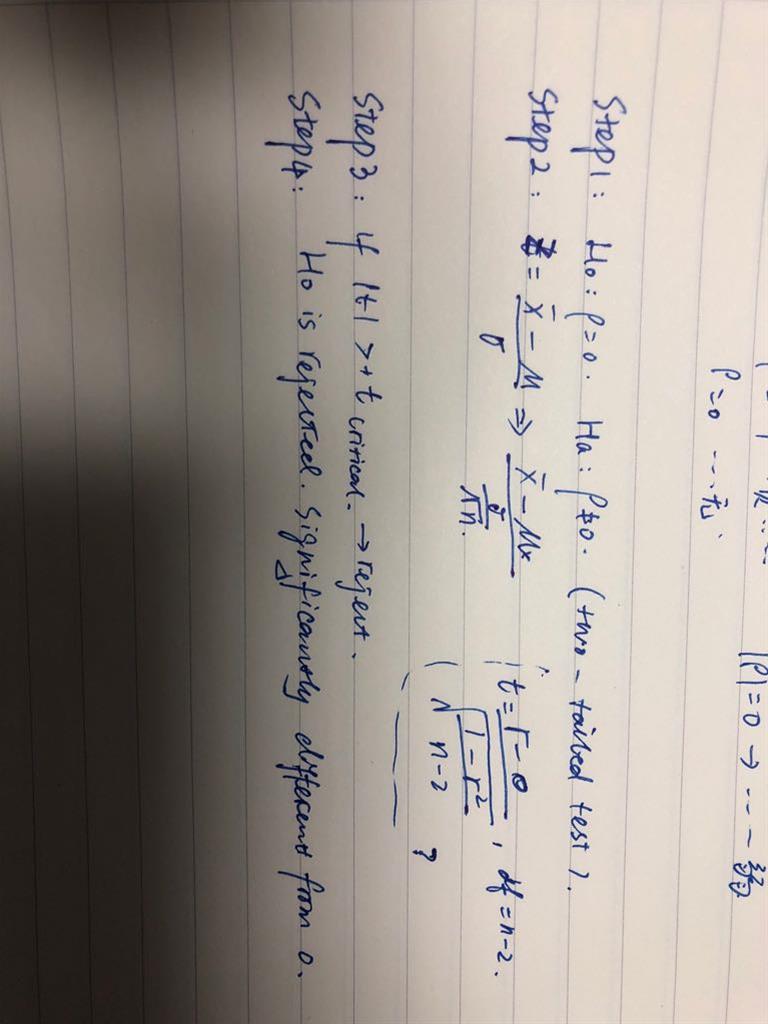 |ρ|=0 → ... 
ρ=0 ... 无
Step1: H₀: ρ=0. Ha: ρ≠0. (two-tailed test).
Step2: t = (x̄ - μ)/σ ⇒ (x̄ - μx)/(σ/√n). t = (r-0)/√((1-r²)/(n-2)), df=n-2.
?
Step3: if |t| > + t critical. → reject.
Step4: H₀ is rejected. Significantly different from 0.